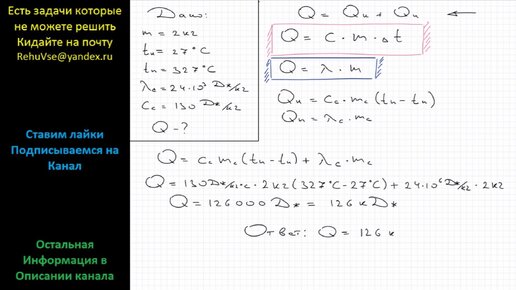 Есть задачи которые
не можете решить
Кидайте на почту
RehuVse@yandex.ru
Ставим лайки
Подписываемся на
Канал
Остальная
Информация в
Описании канала
Дано:
m = 2кг
tн = 27°C
tп = 327°C
λc = 24·10³ Дж/кг
Cc = 130 Дж/кг
Q - ?
Q = Qн + Qп
Q = c · m · Δt
Q = λ · m
Qн = Cc · mc (tп - tн)
Qп = λc · mc
Q = Cc mc (tп - tн) + λc · mc
Q = 130 Дж/кг·°C · 2кг (327°C - 27°C) + 24·10⁶ Дж/кг · 2кг
Q = 126000 Дж = 126 кДж
Ответ: Q = 126 к